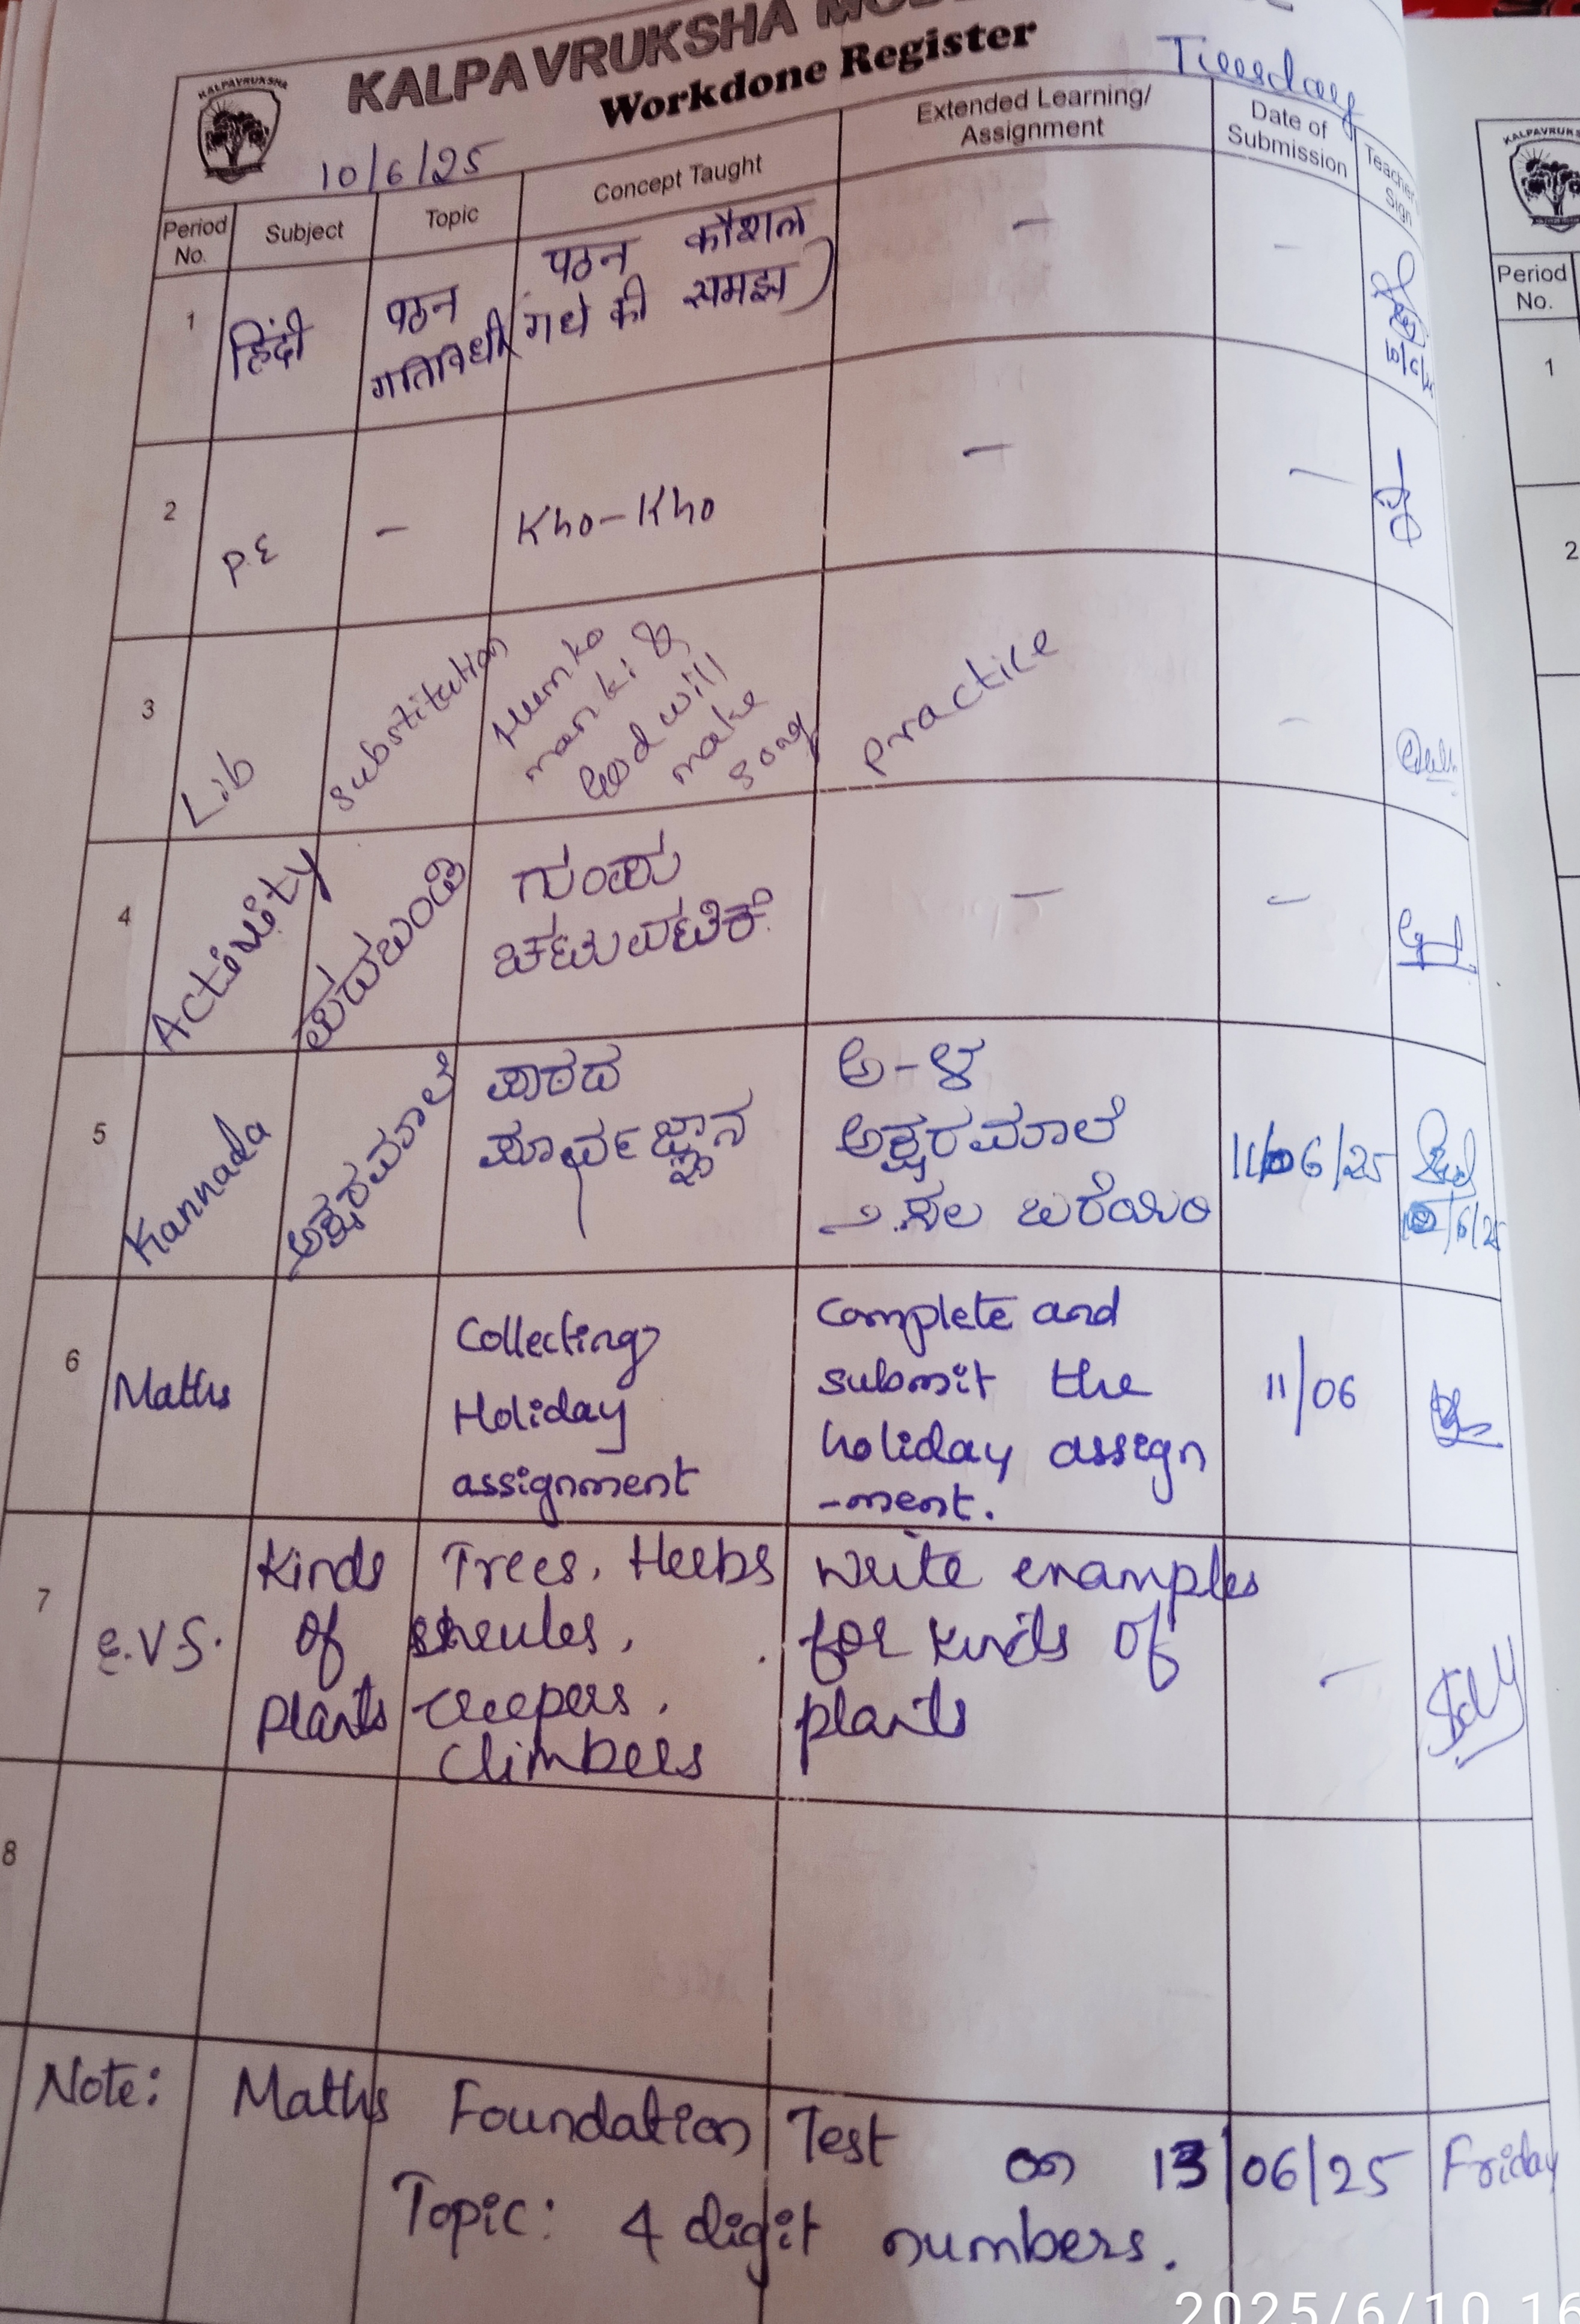 KALPAVRUKSHA
Workdone Register
Tuesday
KALPAVRUKSHA
10/6/25
Period No.
Subject
Topic
Concept Taught
Extended Learning/ Assignment
Date of Submission
Sign
1
हिंदी
पठन
गतिविधी
पठन कौशल
(गधे की समझ)
–
–
2
P.E
–
Kho-Kho
–
–
3
Lib
substitution
Humko
man ki &
God will
make
song
Practice
–
4
Activity
ಪದಬಂಡಿ
ಗುಂಪು
ಚಟುವಟಿಕೆ.
–
–
5
Kannada
ಅಕ್ಷರಮಾಲೆ
ಪಾಠದ
ಪೂರ್ವಜ್ಞಾನ
ಅ-ಳ
ಅಕ್ಷರಮಾಲೆ
೨ ಸಲ ಬರೆಯಿರಿ
11/06/25
6
Maths
Collecting
Holiday
assignment
Complete and
submit the
holiday assign
-ment.
11/06
7
E.V.S.
Kinds
of
Plants
Trees, Herbs
shrubs,
creepers,
climbers
Write examples
for kinds of
plants
–
8
Note: Maths Foundation Test on 13/06/25 Friday
Topic: 4 digit numbers.
KALPAVRUKS
Period No.
1
2
2025/6/10 16